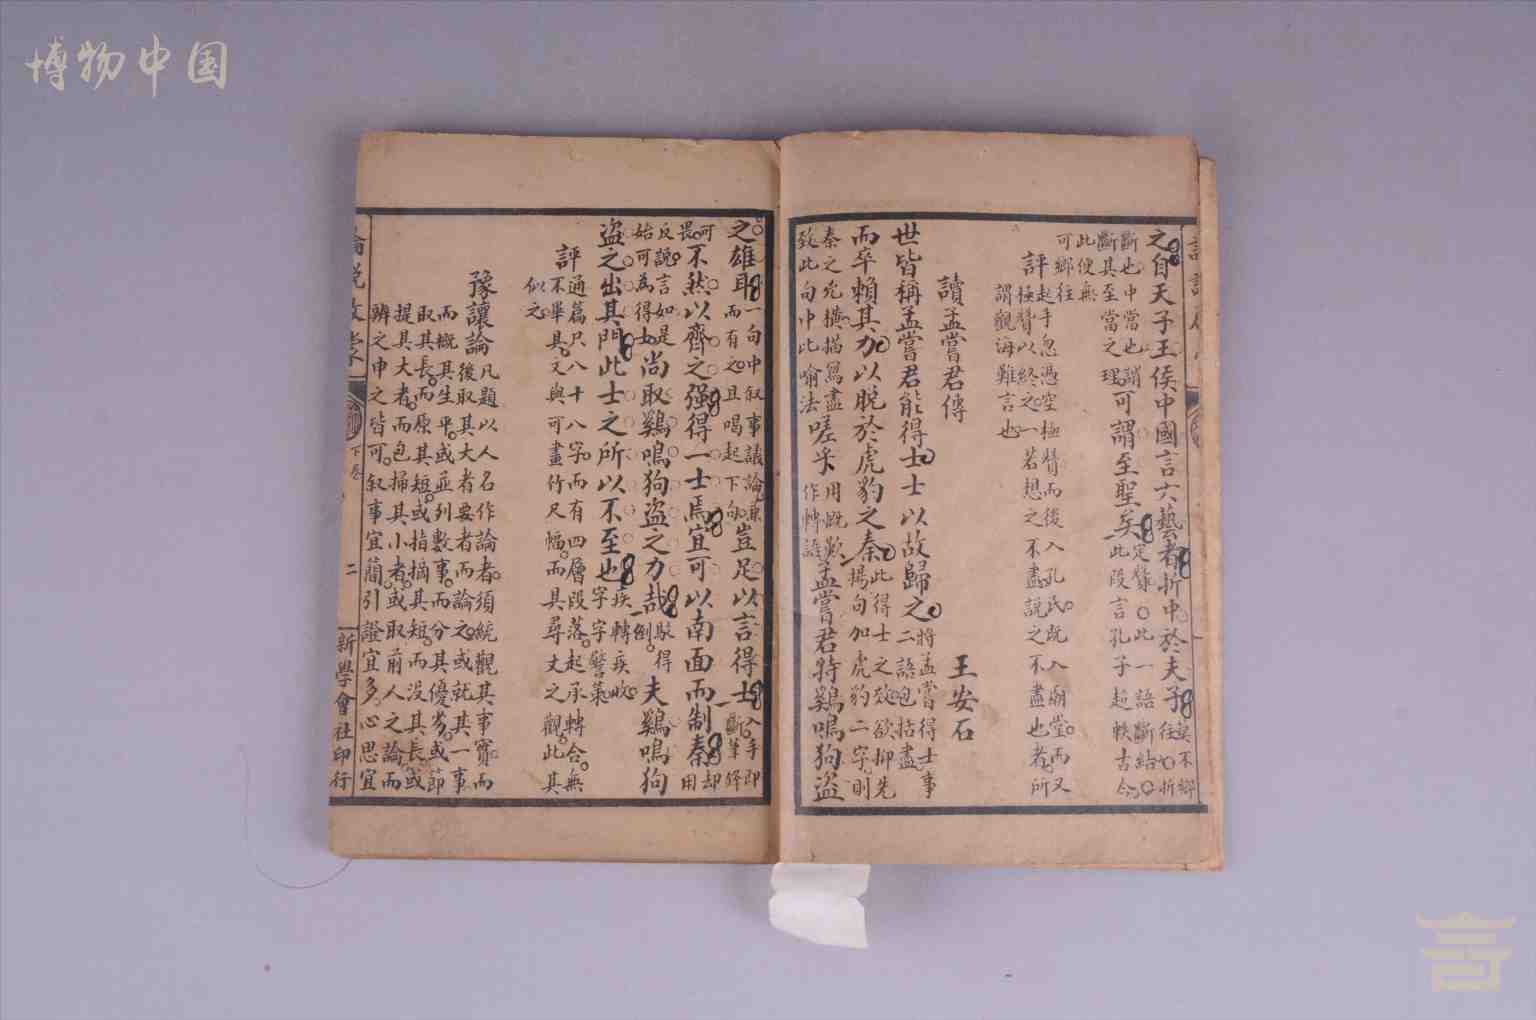 博物中国
之自天子王侯中國言六藝者折中於夫子
斷也中當也謂
斷其至當之理
可謂至聖矣
此便無
可鄉往
評
起手忽憑空極贊而後入孔氏既入廟堂而又
極贊以終之一若想之不盡說之不盡也者所
謂觀海難言也
讀孟嘗君傳
王安石
世皆稱孟嘗君能得士士以故歸之
將孟嘗得士事
二語包括盡
而卒賴其力以脫於虎豹之秦
此得士之效欲抑先
揚句加虎豹二字則
秦之
橫描寫盡
致此句中此喻法
嗟乎
用慨歎
作轉語
孟嘗君特雞鳴狗盜
之雄耳
一句中叙事議論兼
而有之且喝起下句
豈足以言得士
入手即
斷筆
可
畏
不然以齊之强得一士焉宜可以南面而制秦
却
用
反說言如是
始可為得士
尚取雞鳴狗盜之力哉
駁得
倒
夫雞鳴狗
盜之出其門此士之所以不至也
疾轉疾收
字字警策
評
通篇只八十八字而有四層段落起承轉合無
不畢具文與可畫竹尺幅而具尋丈之觀此其
似之
豫讓論
凡題以人名作論者須統觀其事實而
後取其大者要者而論之或就其一事
而概其生平或並列數事而分其優劣或節
取其長而原其短或指摘其短而没其長或
提其大者而包掃其小者或取前人之論而
辨之申之皆可叙事宜簡引證宜多心思宜
論說啟蒙
下卷
二
新學會社印行